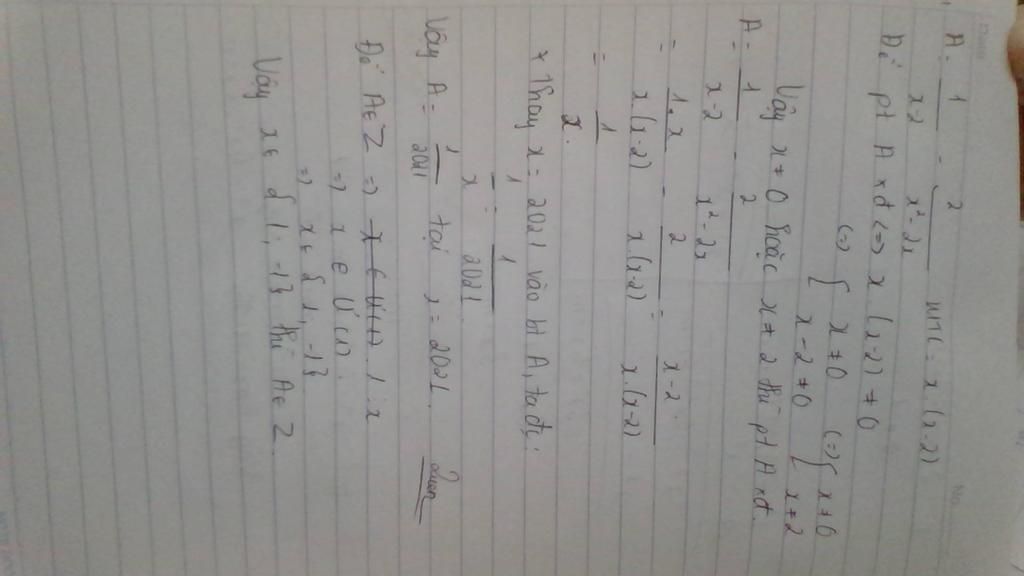 A = 1/x-2 - 2/x²-2x MTC = x.(x-2)
Để pt A xđ <=> x(x-2) ≠ 0
<=> { x ≠ 0 x-2 ≠ 0 <=> { x ≠ 0 x ≠ 2
Vậy x ≠ 0 hoặc x ≠ 2 thì pt A xđ.
A = 1/x-2 - 2/x²-2x
= 1.x/x(x-2) - 2/x(x-2) = x-2/x.(x-2)
= 1/x.
* Thay x = 2021 vào bt A, ta đc:
1/x = 1/2021
Vậy A = 1/2021 tại x = 2021.
Để A ∈ Z => 1 ⋮ x
=> x ∈ Ư(1).
=> x ∈ {1, -1}
Vậy x ∈ {1; -1} thì A ∈ Z.